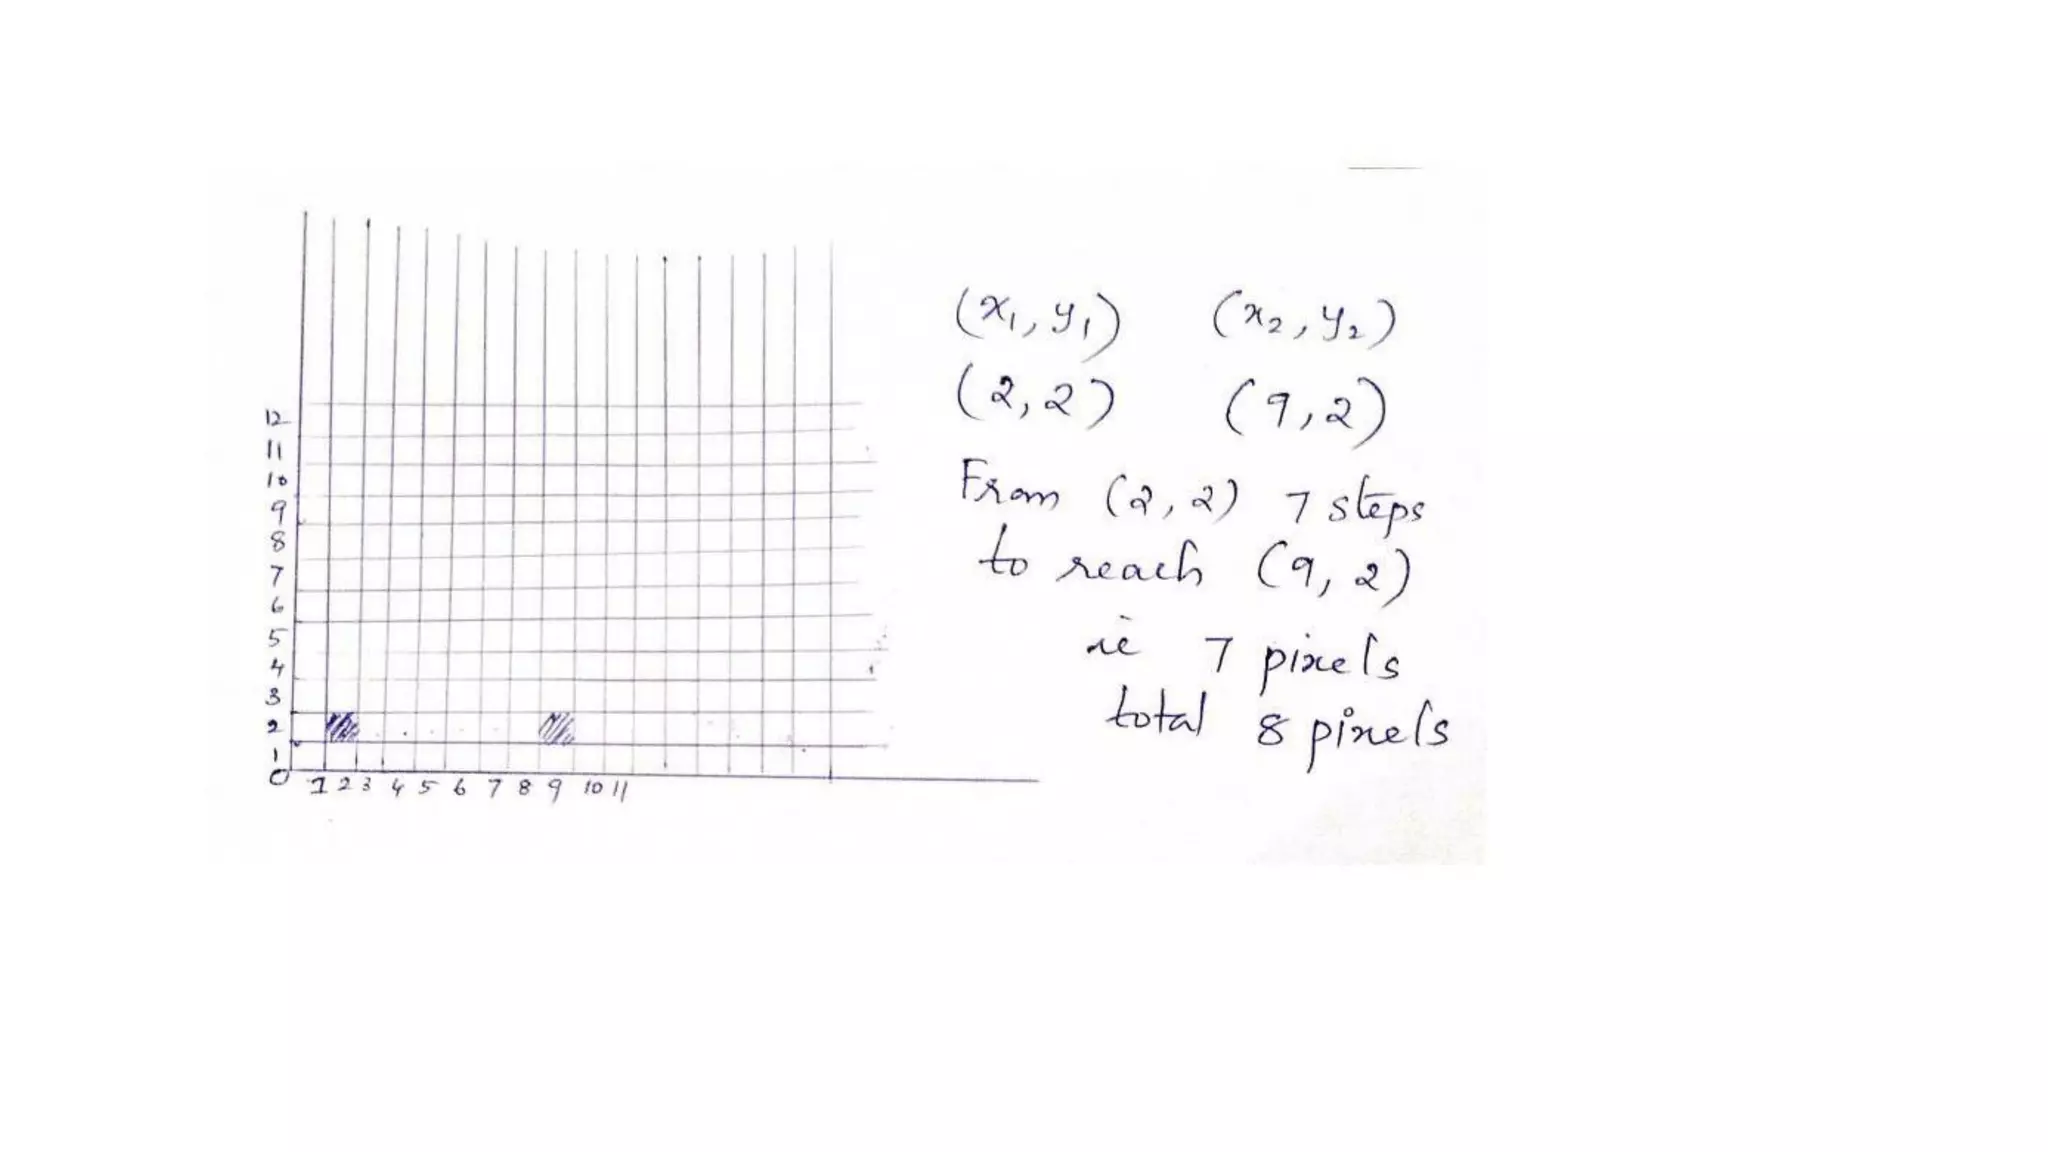 (x₁, y₁) (x₂, y₂)
(2, 2) (9, 2)
From (2, 2) 7 steps
to reach (9, 2)
ie 7 pixels
total 8 pixels
12
11
10
9
8
7
6
5
4
3
2
1
0
1 2 3 4 5 6 7 8 9 10 11